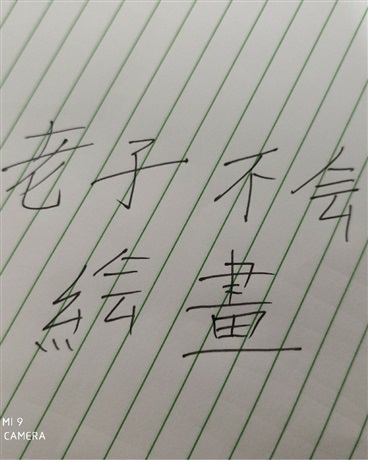 老子不会
絵畫
MI 9
CAMERA